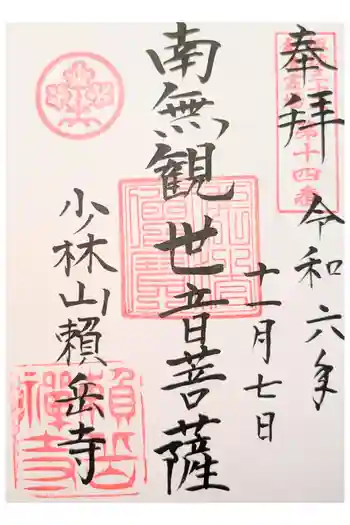 奉拝
令和六年
十一月七日
南無観世音菩薩
少林山賴岳寺
賴岳
禅寺